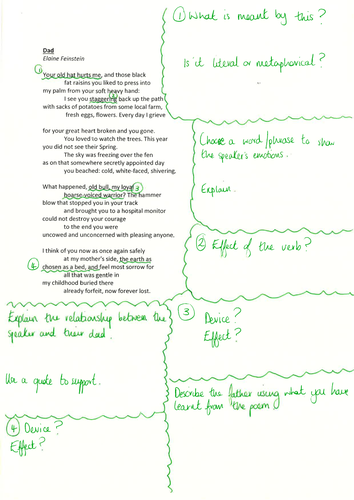 Dad
Elaine Feinstein
① Your old hat hurts me, and those black
fat raisins you liked to press into
my palm from your soft heavy hand:
I see you staggering back up the path
with sacks of potatoes from some local farm,
fresh eggs, flowers. Every day I grieve
for your great heart broken and you gone.
You loved to watch the trees. This year
you did not see their Spring.
The sky was freezing over the fen
as on that somewhere secretly appointed day
you beached: cold, white-faced, shivering.
What happened, old bull, my loyal ③
hoarse-voiced warrior? The hammer
blow that stopped you in your track
and brought you to a hospital monitor
could not destroy your courage
to the end you were
uncowed and unconcerned with pleasing anyone.
I think of you now as once again safely
at my mother's side, the earth as
④ chosen as a bed, and feel most sorrow for
all that was gentle in
my childhood buried there
already forfeit, now forever lost.
① What is meant by this?
Is it literal or metaphorical?
Choose a word/phrase to show
the speaker's emotions.
Explain.
② Effect of the verb?
Explain the relationship between the
speaker and their dad.
Use a quote to support.
③ Device?
Effect?
Describe the father using what you have
learnt from the poem
④ Device?
Effect?